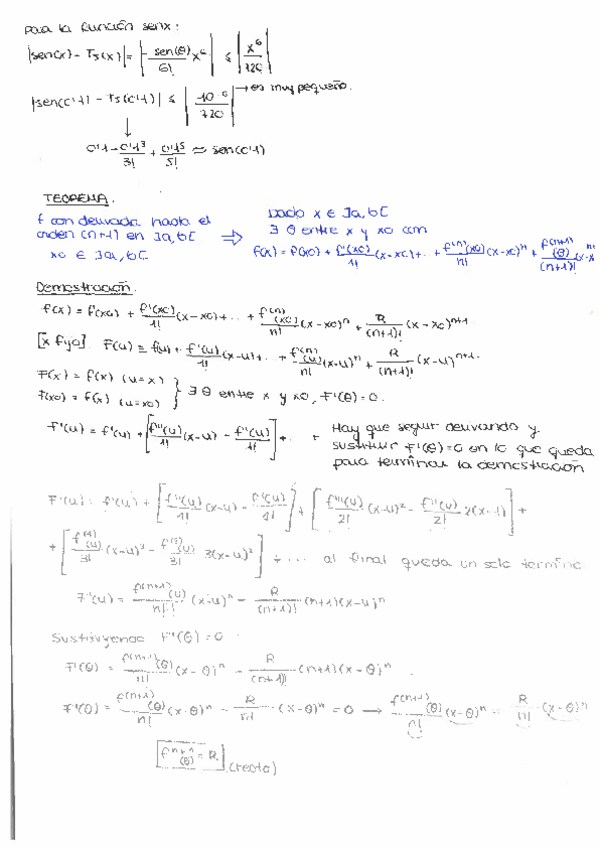 para la función senx:
|sen(x) - T5(x)| = |- sen(θ)/6! x^6| ≤ |x^6/720|
|sen(0'1) - T5(0'1)| ≤ |10^-6/720| → es muy pequeño.
↓
0'1 - 0'1^3/3! + 0'1^5/5! ≈ sen(0'1)
TEOREMA.
f con derivada hasta el orden (n+1) en ]a,b[
x0 ∈ ]a,b[
⇒
Dado x ∈ ]a,b[
∃ θ entre x y x0 con
f(x) = f(x0) + f'(x0)/1! (x-x0) + .. + f^(n)(x0)/n! (x-x0)^n + f^(n+1)(θ)/(n+1)! (x-x
Demostración.
f(x) = f(x0) + f'(x0)/1! (x-x0) + .. + f^(n)(x0)/n! (x-x0)^n + R/(n+1)! (x-x0)^n+1
[x fijo]. F(u) = f(u) + f'(u)/1! (x-u) + .. + f^(n)(u)/n! (x-u)^n + R/(n+1)! (x-u)^n+1.
F(x) = f(x) (u=x)
F(x0) = f(x) (u=x0)
} ∃ θ entre x y x0, F'(θ)=0.
F'(u) = f'(u) + [f''(u)/1! (x-u) - f'(u)/1!] + ..
Hay que seguir derivando y
sustituir F'(θ)=0 en lo que queda
para terminar la demostración
F'(u) = f'(u) + [f''(u)/1! (x-u) - f'(u)/1!] + [f'''(u)/2! (x-u)^2 - f''(u)/2! 2(x-u)] +
+ [f^(4)(u)/3! (x-u)^3 - f^(3)(u)/3! 3(x-u)^2] + ... al final queda un solo termino
F'(u) = f^(n+1)(u)/n! (x-u)^n - R/(n+1)! (n+1)(x-u)^n
Sustituyendo F'(θ)=0.
F'(θ) = f^(n+1)(θ)/n! (x-θ)^n - R/(n+1)! (n+1)(x-θ)^n.
F'(θ) = f^(n+1)(θ)/n! (x-θ)^n - R/n! (x-θ)^n = 0 → f^(n+1)(θ)/n! (x-θ)^n = R/n! (x-θ)^n
f^n+1(θ) = R (resto)